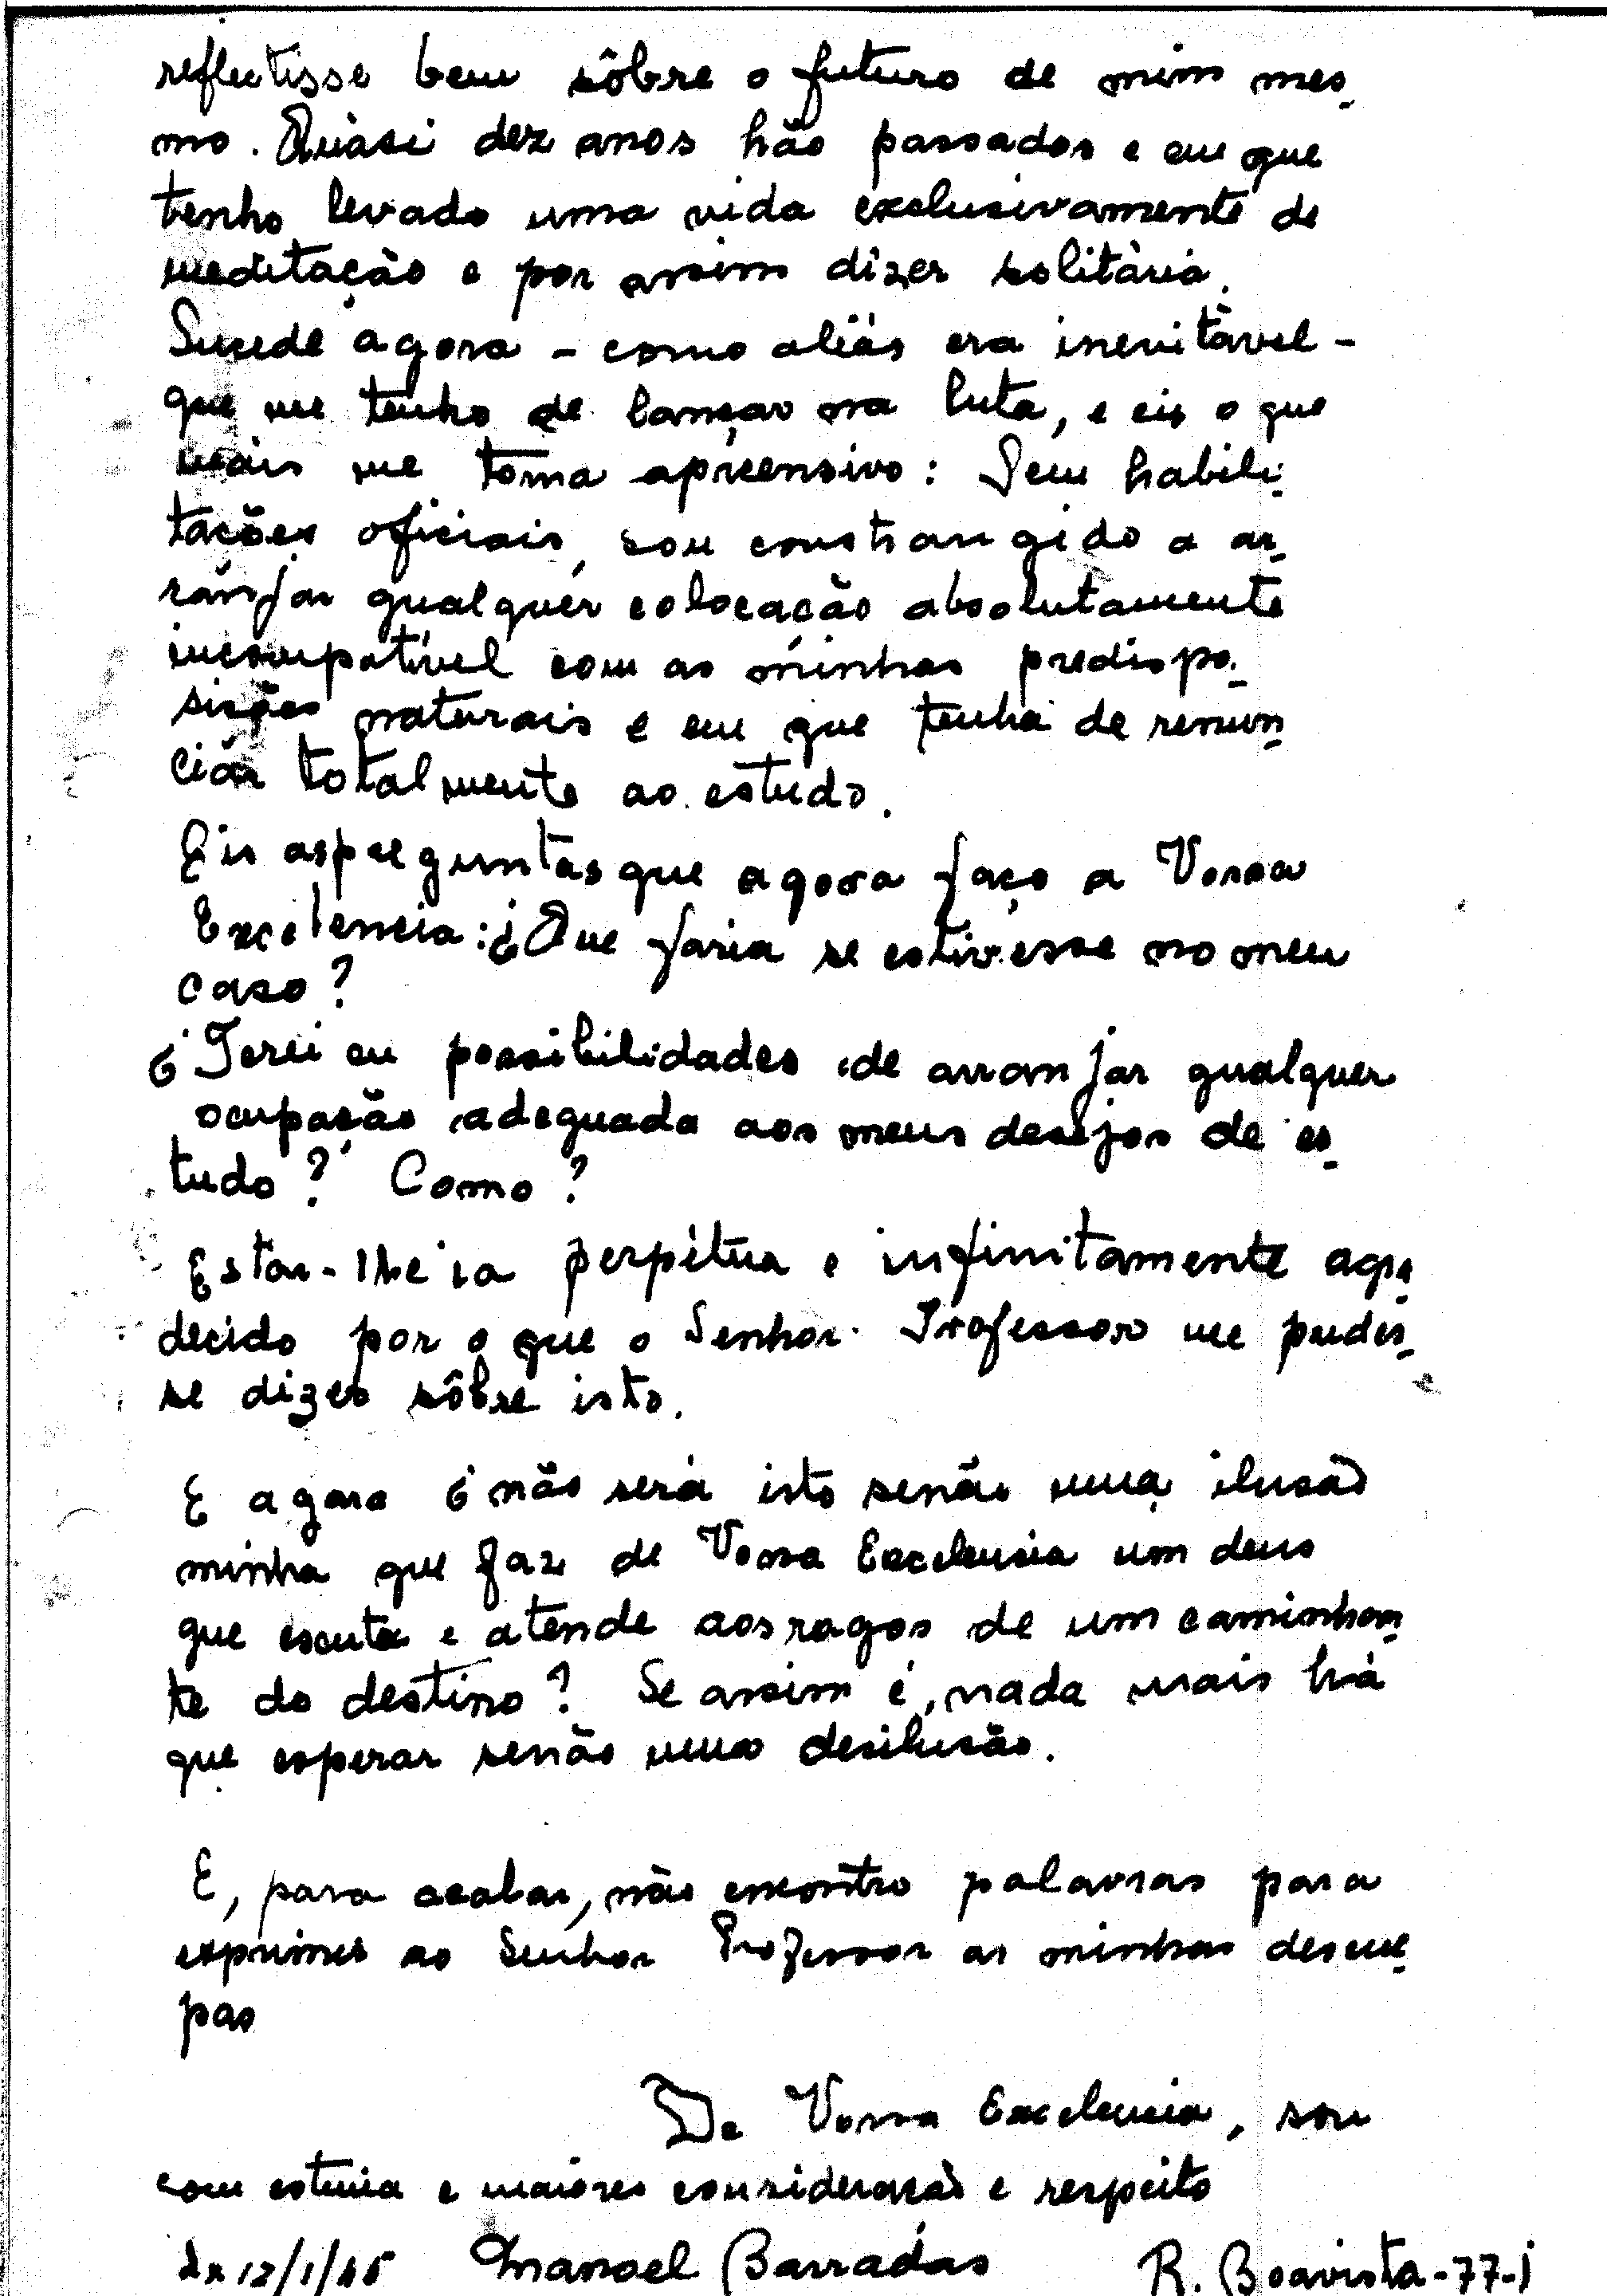 reflectisse bem sôbre o futuro de mim mes-
mo. Quási dez anos hão passados e em que
tenho levado uma vida exclusivamente de
meditação e por assim dizer solitária.
Sucede agora - como aliás era inevitável -
que me tenho de lançar na luta, e eis o que
mais me torna apreensivo: Sem habili-
tações oficiais, sou constrangido a ar-
ranjar qualquer colocação absolutamente
incompatível com as minhas predispo-
sições naturais e em que tenha de renun-
ciar totalmente ao estudo.
Eis as perguntas que agora faço a Vossa
Excelencia: ¿Que faria se estivesse no meu
caso?
¿Terei eu possibilidades de arranjar qualquer
ocupação adequada aos meus desejos de es-
tudo? Como?
Estar-lhe ia perpétua e infinitamente agra-
decido por o que o Senhor Professor me pudes-
se dizer sôbre isto.
E agora ¿não será isto senão uma ilusão
minha que faz de Vossa Excelencia um deus
que escuta e atende aos rogos de um caminhan-
te do destino? Se assim é, nada mais há
que esperar senão uma desilusão.
E, para acabar, não encontro palavras para
exprimir ao Senhor Professor as minhas descul-
pas
De Vossa Excelencia, sou
com estima e maiores consideração e respeito
Lx 12/1/45 Manoel Barradas R. Boavista-77-j